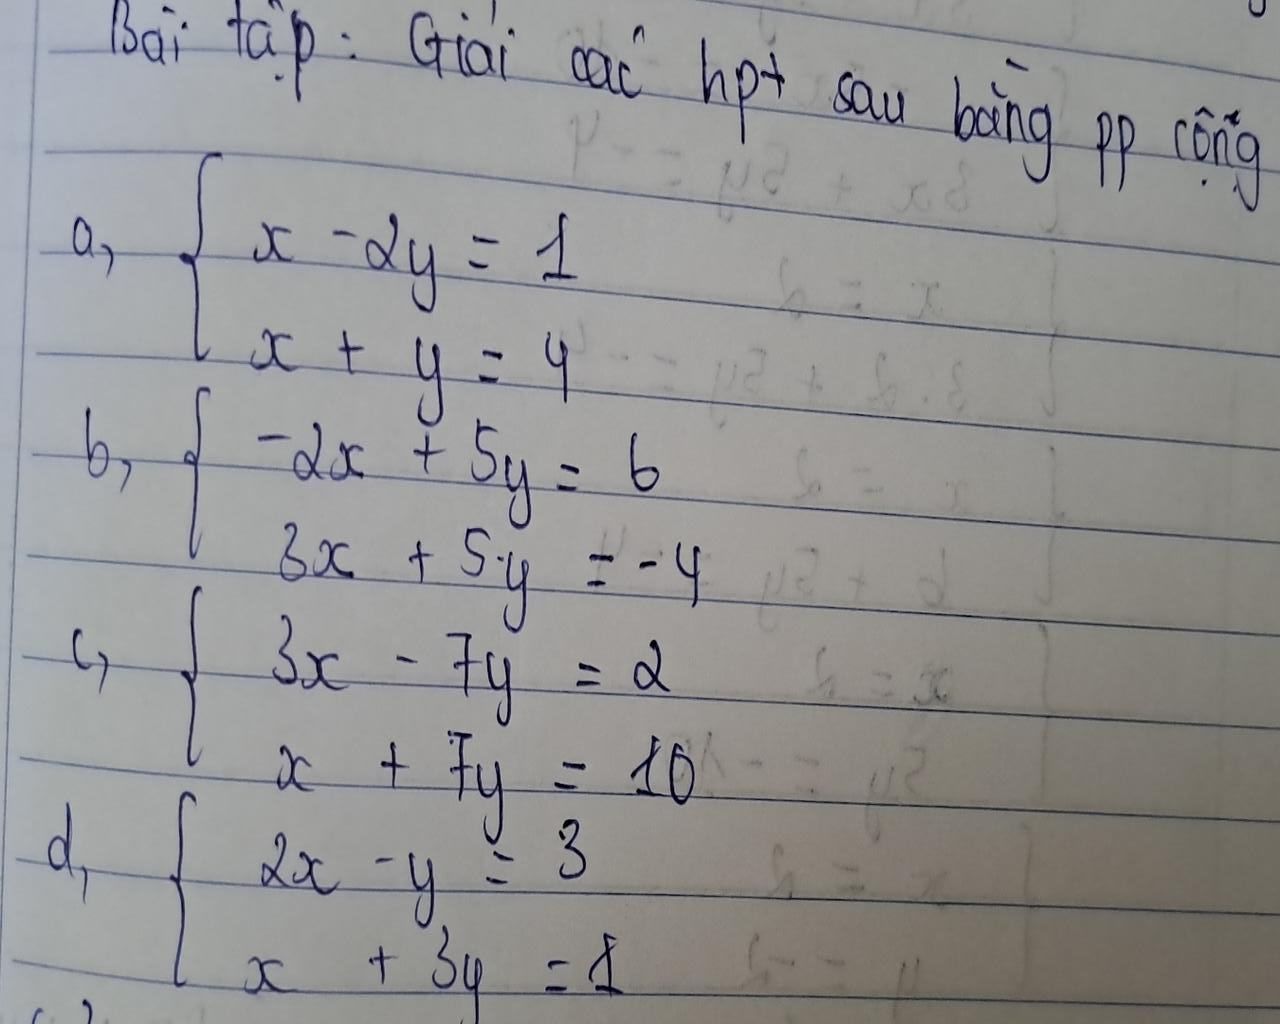 Bài tập: Giải các hpt sau bằng pp cộng
a, { x - 2y = 1
x + y = 4
b, { -2x + 5y = 6
3x + 5y = -4
c, { 3x - 7y = 2
x + 7y = 10
d, { 2x - y = 3
x + 3y = 1